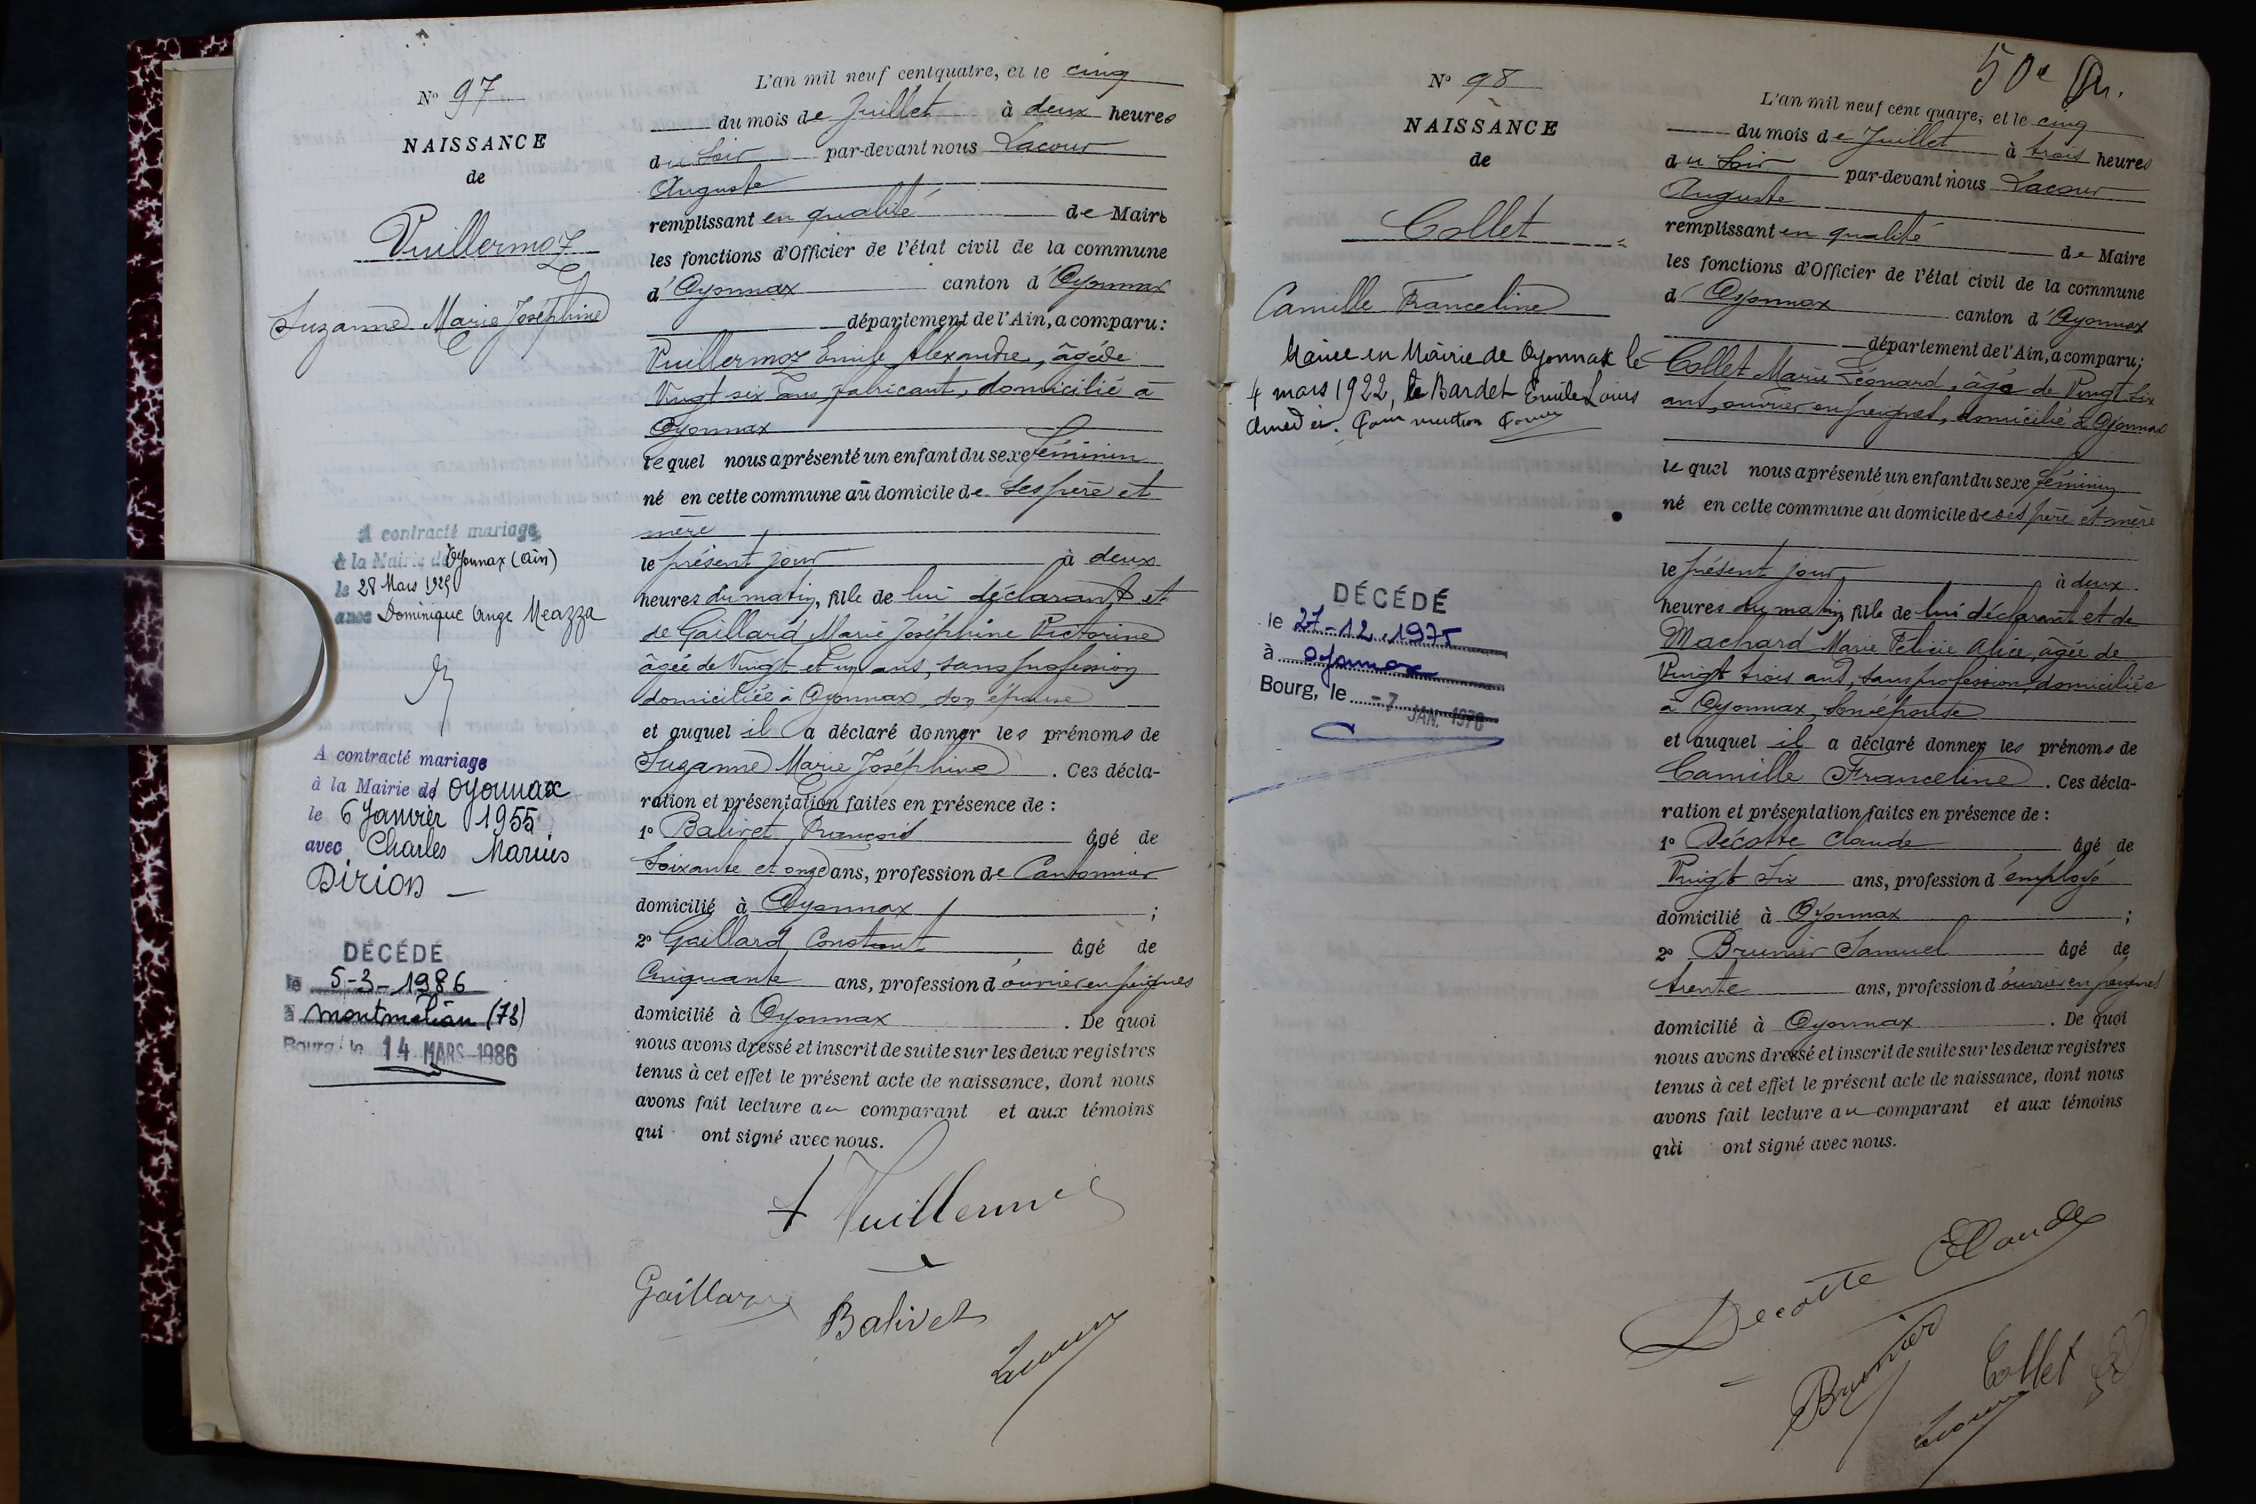 N° 97
NAISSANCE
de
Vuillermoz
Suzanne Marie Joséphine
A contracté mariage
à la Mairie de Oyonnax (Ain)
le 28 Mars 1925
avec Dominique Ange Meazza
A contracté mariage
à la Mairie d' Oyonnax
le 6 Janvier 1955
avec Charles Marius
Dirion
DÉCÉDÉ
le 5-3-1986
à Montmélian (73)
Bourg, le 14 MARS 1986
L'an mil neuf cent quatre, et le cinq
du mois de Juillet à deux heures
du soir par-devant nous Lacour
Auguste
remplissant en qualité de Maire
les fonctions d'Officier de l'état civil de la commune
d'Oyonnax canton d'Oyonnax
département de l'Ain, a comparu:
Vuillermoz Emile Alexandre, âgé de
Vingt six ans, fabricant, domicilié à
Oyonnax
lequel nous a présenté un enfant du sexe féminin
né en cette commune au domicile de ses père et
mère
le présent jour à deux
heures du matin, fille de lui déclarant et
de Gaillard Marie Joséphine Victorine
âgée de Vingt et un ans, sans profession
domiciliée à Oyonnax, son épouse
et auquel il a déclaré donner les prénoms de
Suzanne Marie Joséphine. Ces décla-
ration et présentation faites en présence de :
1° Balivet François âgé de
Soixante et onze ans, profession de Cantonnier
domicilié à Oyonnax ;
2° Gaillard Constant âgé de
Cinquante ans, profession d'ouvrier en peignes
domicilié à Oyonnax . De quoi
nous avons dressé et inscrit de suite sur les deux registres
tenus à cet effet le présent acte de naissance, dont nous
avons fait lecture au comparant et aux témoins
qui ont signé avec nous.
Gaillard
Balivet
Lacour
50e
N° 98
NAISSANCE
de
Collet
Camille Franceline
Mariée en Mairie de Oyonnax le
4 mars 1922, à Bardet Emile Louis
Amédée. Pour mention
DÉCÉDÉ
le 27-12-1975
à Oyonnax
Bourg, le -7 JAN. 1976
L'an mil neuf cent quatre, et le cinq
du mois de Juillet à trois heures
du soir par-devant nous Lacour
Auguste
remplissant en qualité de Maire
les fonctions d'Officier de l'état civil de la commune
d'Oyonnax canton d'Oyonnax
département de l'Ain, a comparu;
Collet Marie Léonard, âgé de Vingt six
ans, ouvrier en peignes, domicilié à Oyonnax
lequel nous a présenté un enfant du sexe féminin
né en cette commune au domicile de ses père et mère
le présent jour à deux
heures du matin, fille de lui déclarant et de
Machard Marie Félicie Alice, âgée de
Vingt trois ans, sans profession, domiciliée
à Oyonnax, son épouse
et auquel il a déclaré donner les prénoms de
Camille Franceline. Ces décla-
ration et présentation faites en présence de :
1° Décotte Claude âgé de
Vingt six ans, profession d'employé
domicilié à Oyonnax ;
2° Brunier Samuel âgé de
trente ans, profession d'ouvrier en peignes
domicilié à Oyonnax . De quoi
nous avons dressé et inscrit de suite sur les deux registres
tenus à cet effet le présent acte de naissance, dont nous
avons fait lecture au comparant et aux témoins
qui ont signé avec nous.
Decotte Claude
Brunier
Collet
Lacour